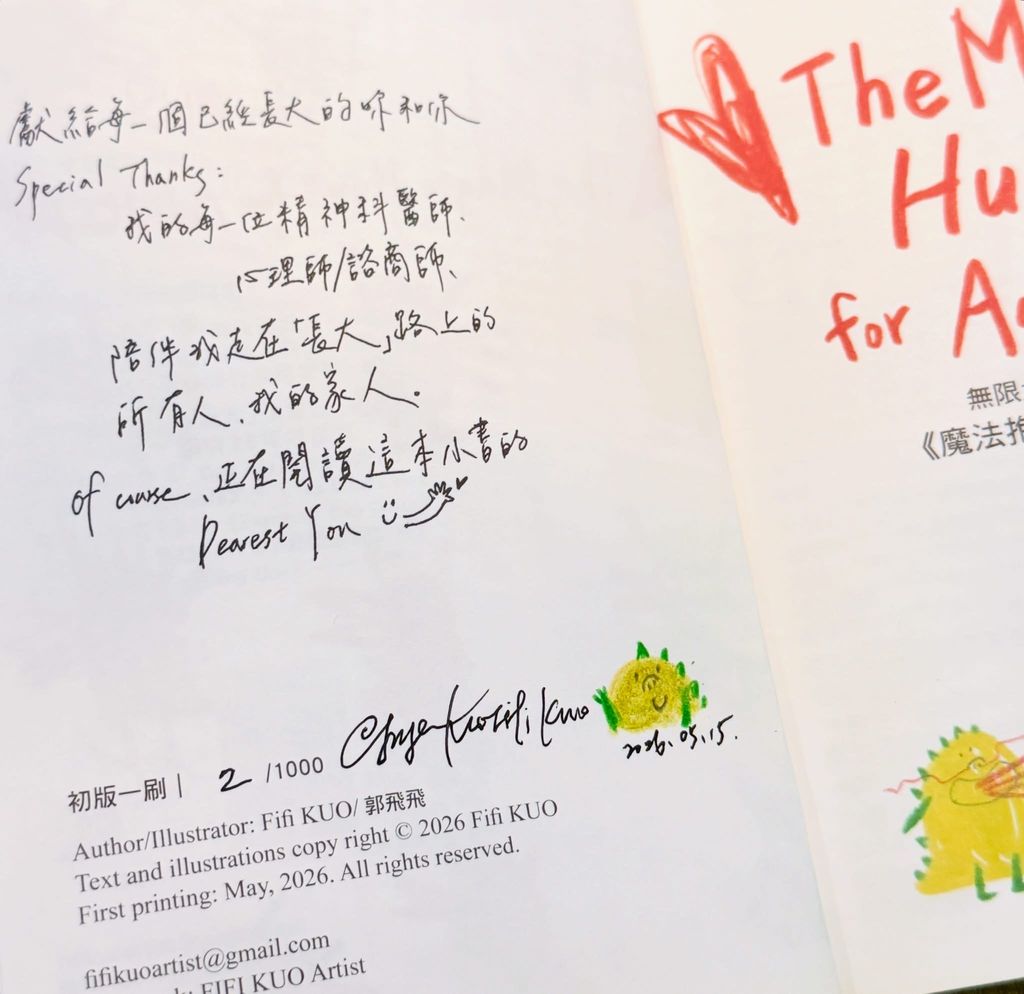 獻給每一個已經長大的妳和你
Special Thanks:
我的每一位精神科醫師、
心理師/諮商師、
陪伴我走在「長大」路上的
所有人、我的家人。
of course、正在閱讀這本小書的
Dearest You
初版一刷| 2 /1000
Fifi Kuo
2026.05.15.
Author/Illustrator: Fifi KUO/ 郭飛飛
Text and illustrations copy right © 2026 Fifi KUO
First printing: May, 2026. All rights reserved.
fifikuoartist@gmail.com
FIFI KUO Artist
The M
Hu
for A
無限
《魔法抱